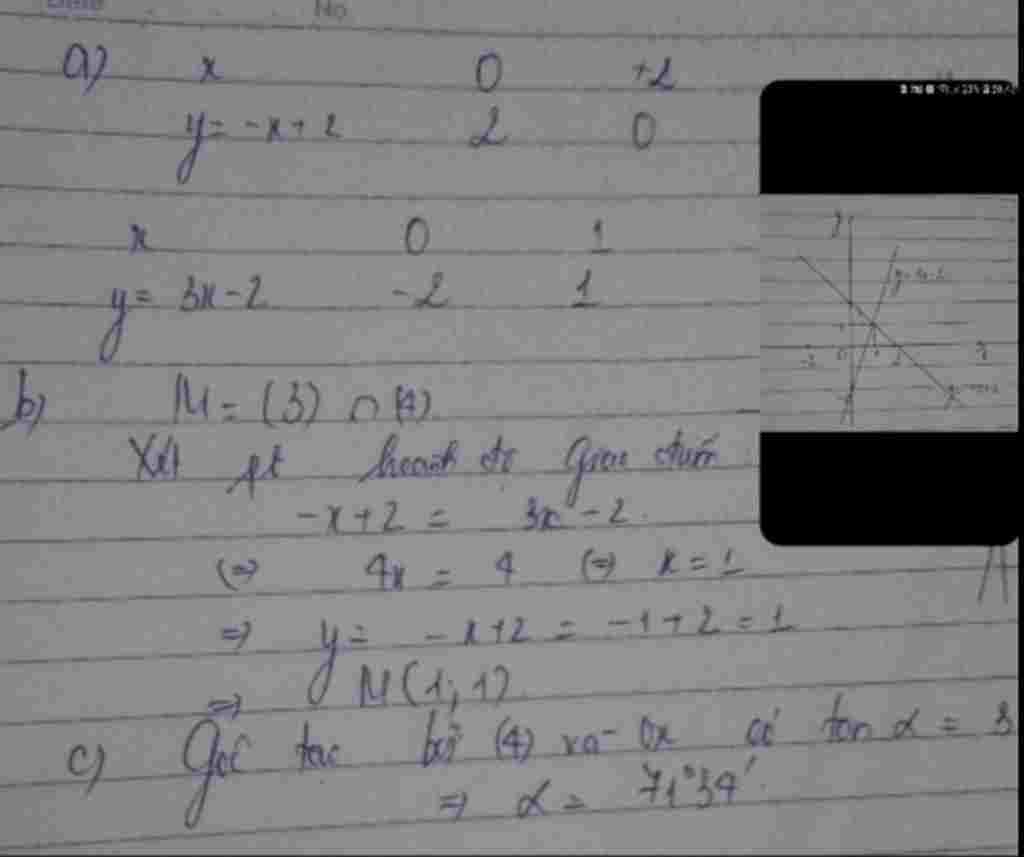 No
a) x 0 +2
y = -x + 2 2 0
x 0 1
y = 3x - 2 -2 1
b) M = (3) ∩ (4)
Xét pt hoành độ giao điểm
-x + 2 = 3x - 2
(=) 4x = 4 (=) x = 1
=> y = -x + 2 = -1 + 2 = 1
=> M(1; 1)
c) Góc tạo bởi (4) và Ox có tan α = 3
=> α = 71°34'
y
1
-2 0 1 2 x